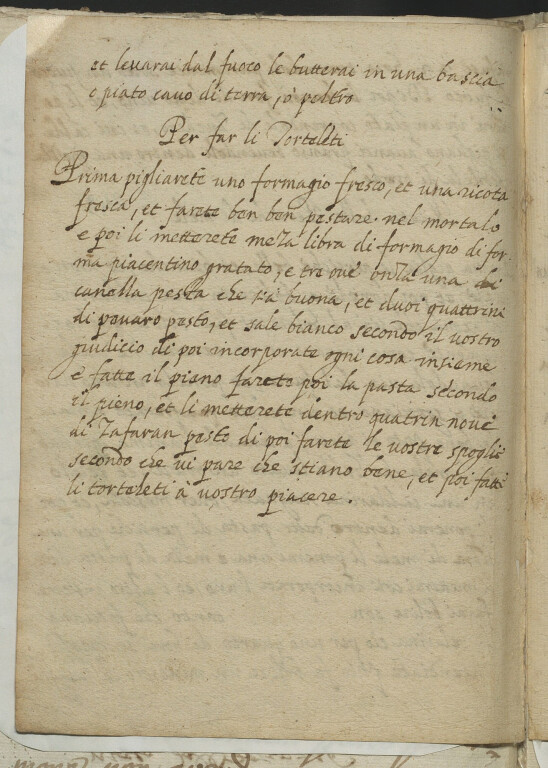 et levarai dal fuoco le butterai in una bascia
e piato cavo di terra, ò peltro
Per far li Torteleti
Prima pigliarete uno formagio fresco, et una ricota
fresca, et farete ben ben pestare nel mortalo
e poi li metterete meza libra di formagio di for.
ma piacentino gratato, e tre ove onza una di
canella pesta che sia buona, et duoi quattrini
di pevaro pesto, et sale bianco secondo il vostro
giudicio di poi incorporate ogni cosa insieme
e fatte il pieno farete poi la pasta secondo
il pieno, et li metterete dentro quatrin nove
di Zafaran pesto di poi farete le vostre spoglie
secondo che vi pare che stiano bene, et poi fatte
li torteleti à vostro piacere.